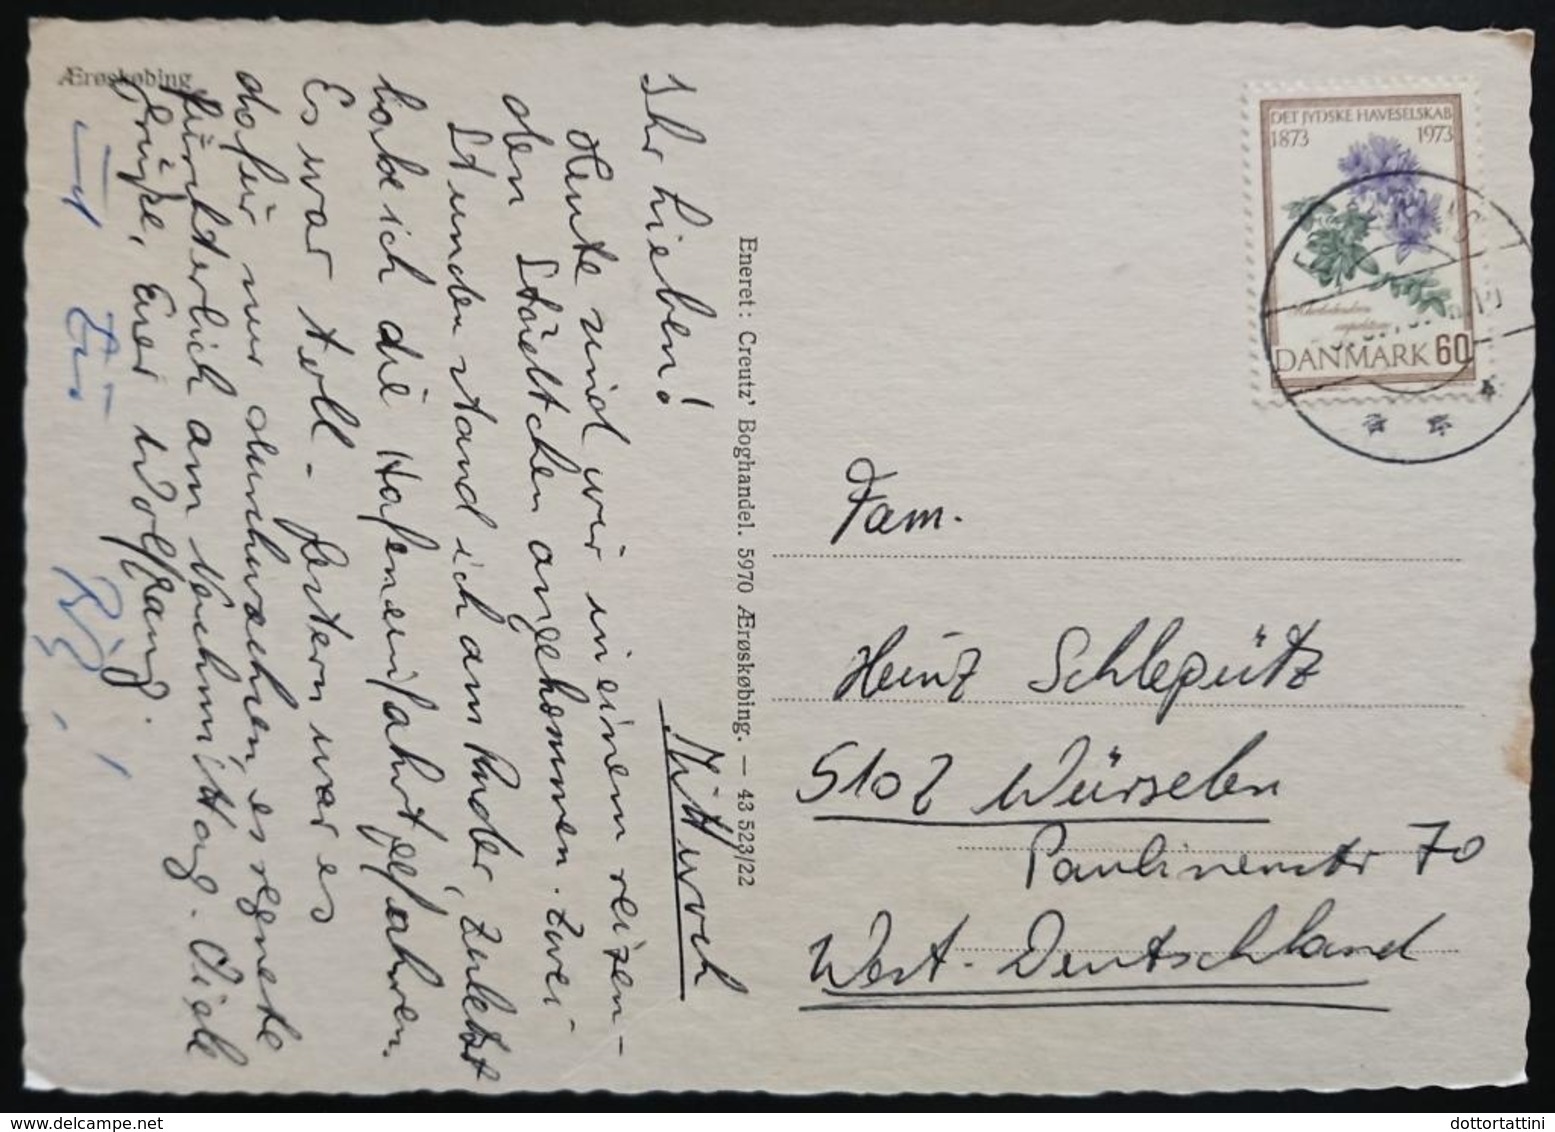 Ærøskøbing
Mittwoch
Ihr Lieben!
Heute sind wir in einem reizen-
den Städtchen angekommen. Zwei
Stunden stand ich am Ruder, zuletzt
habe ich die Hafeneinfahrt gefahren.
Es war toll - gestern war es
dafür nur durchwachsen, es regnete
fürchterlich am Nachmittag. Viele
Grüße, Euer Wolfgang.
Eneret: Creutz' Boghandel. 5970 Ærøskøbing. — 43 523/22
DET JYDSKE HAVESELSKAB
1873 1973
DANMARK 60
Fam.
Heinz Schlepütz
5102 Würselen
Paulinenstr 70
West-Deutschland
dottortattini